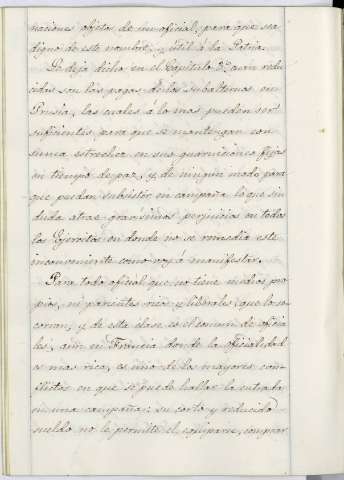 naciones objeto de un oficial, para que sea
digno de este nombre, y util á la Patria.
Se deja dicho en el Capitulo 3º cuan redu
cidas son las pagas de los subalternos en
Prusia, las cuales á lo mas, pueden ser
suficientes para que se mantengan con
suma estrechez en sus guarniciones fijas
en tiempo de paz, y de ningun modo para
que puedan subsistir en campaña, lo que sin
duda atrae gravisimos perjuicios en todos
los Ejercitos en donde no se remedia este
inconveniente como voy á manifestar.
Para todo oficial que no tiene medios pro
pios, ni parientes ricos y liberales, que lo so-
corran, y de esta clase es el comun de oficia
les, aun en Francia donde la oficialidad
es mas rica, es uno de los mayores con-
flictos en que se puede hallar la entrada
en una campaña: su corto y reducido
sueldo no le permite el equiparse, comprar